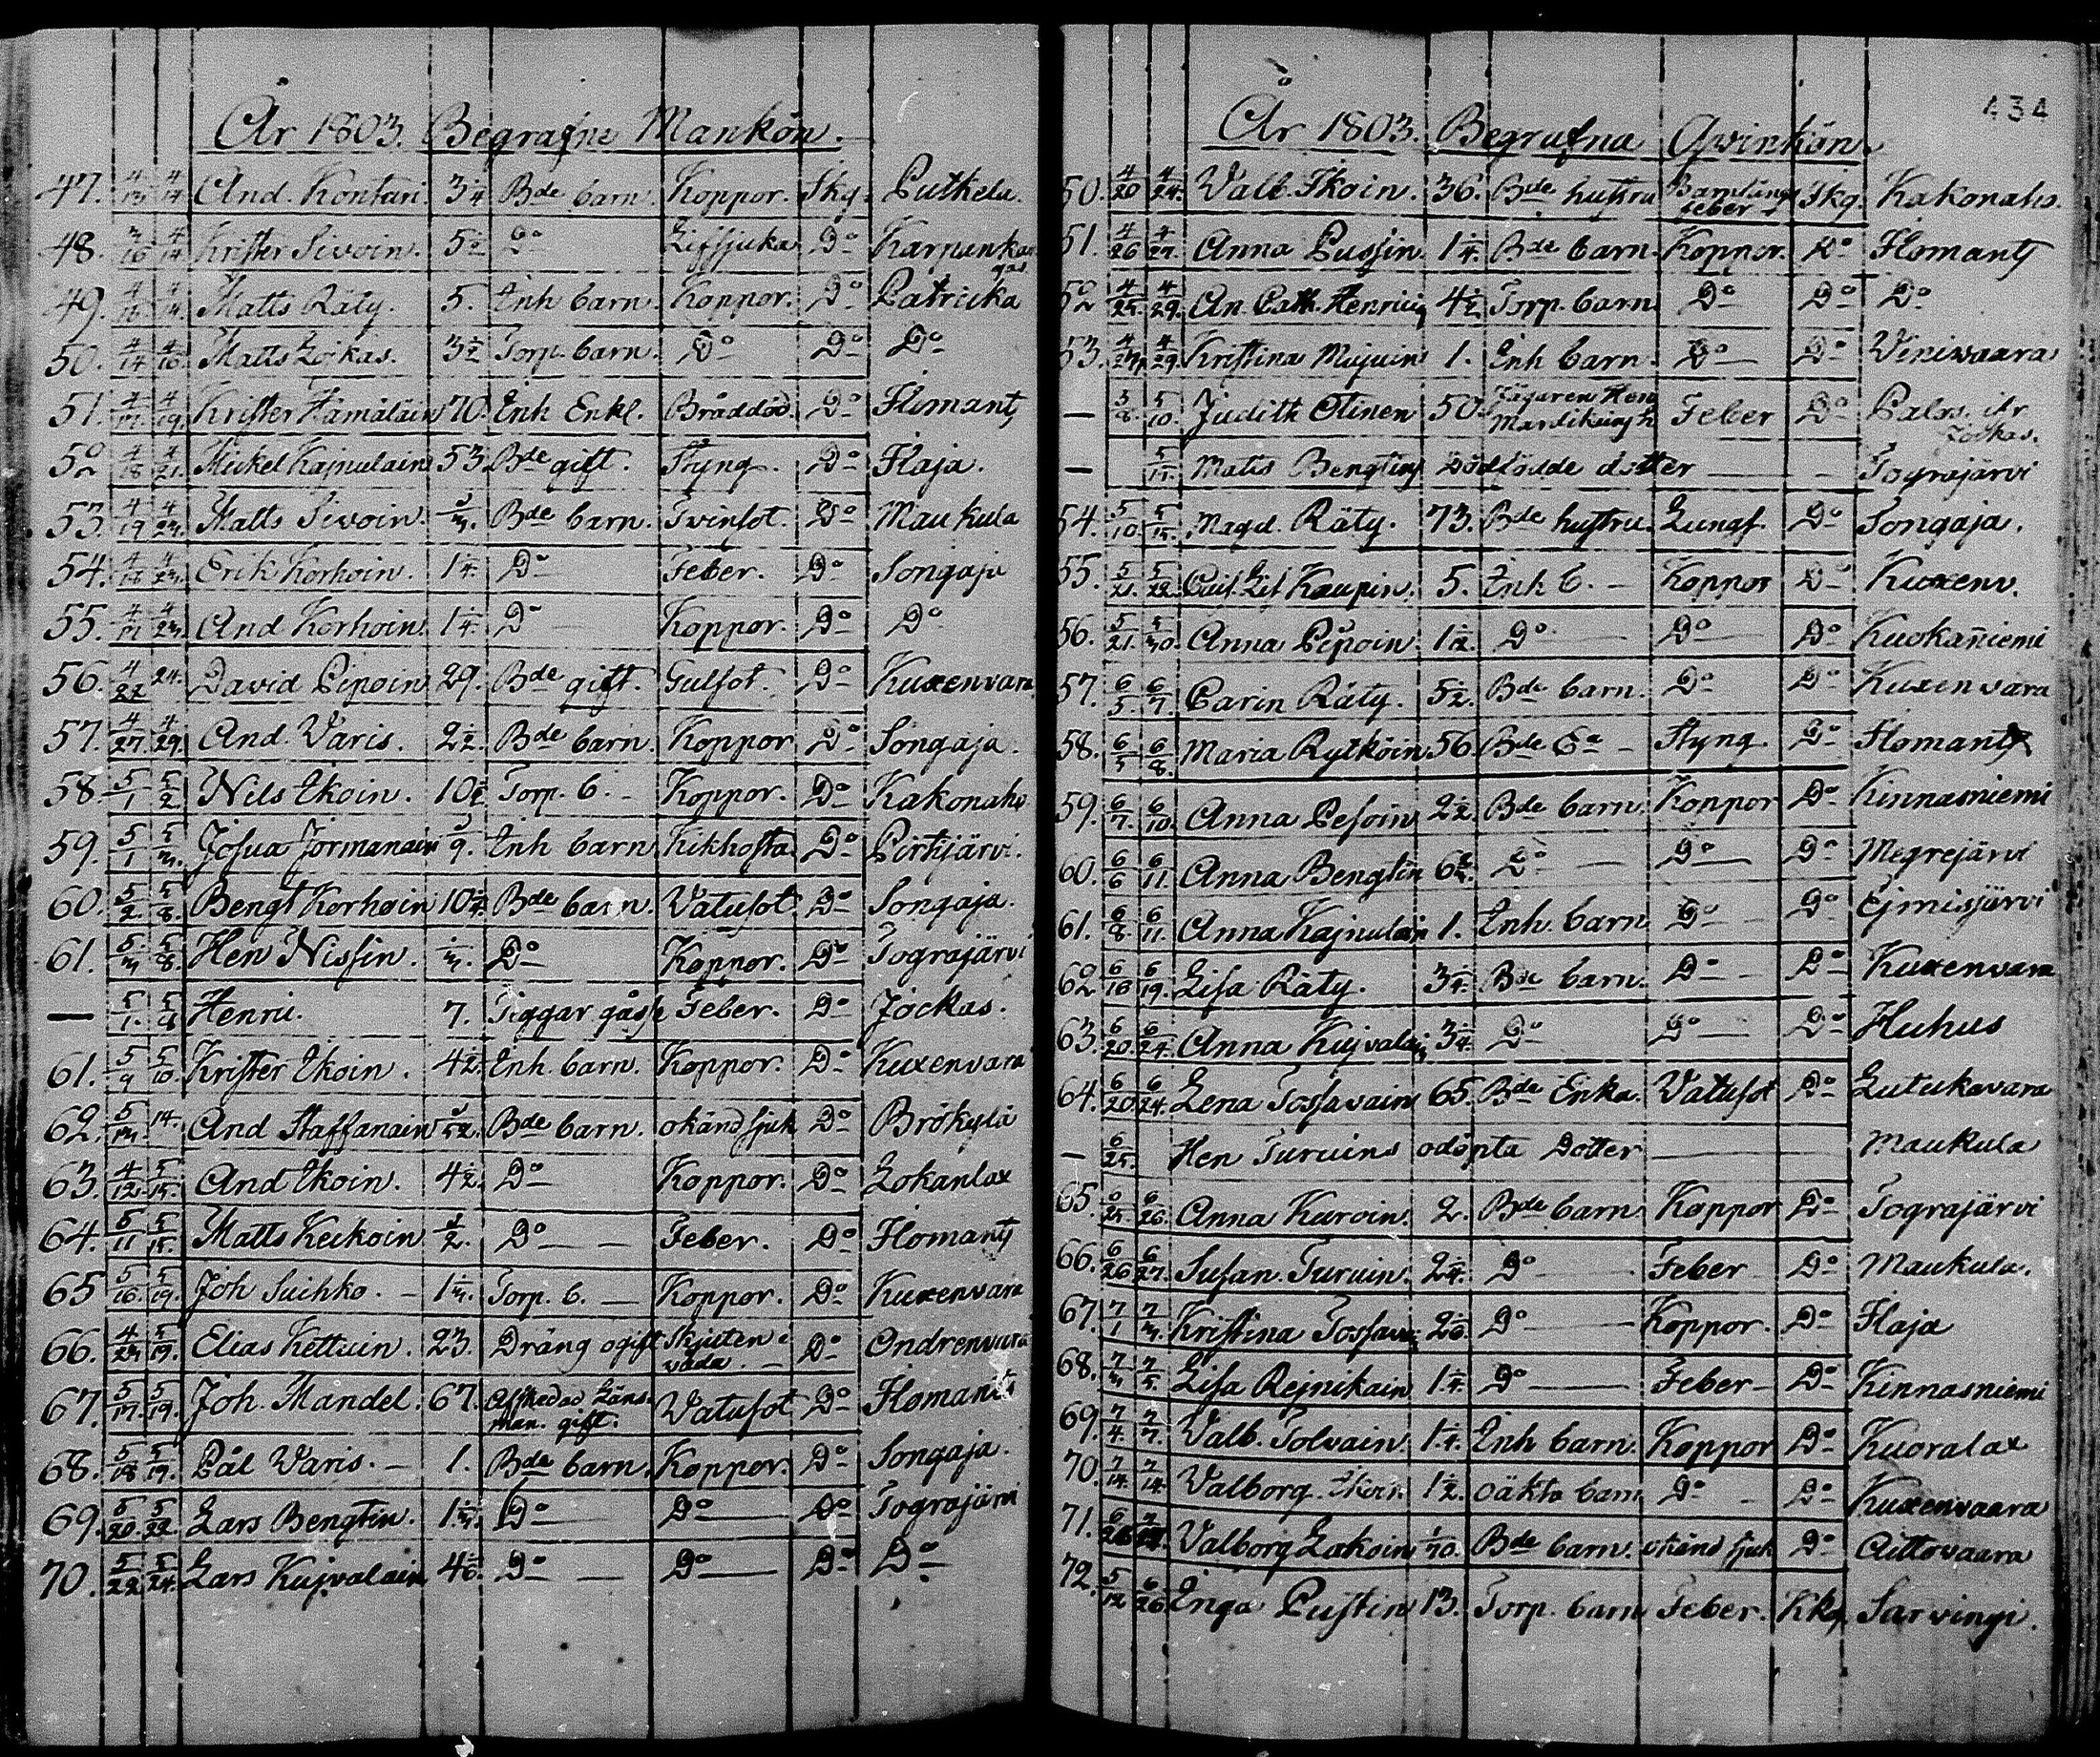 År 1803. Begrafne Mankön.
47. 4/13 4/14 And. Kontari. 3 1/4 Bde barn. Koppor. Skg. Putkela.
48. 3/16 4/14 Krister Sivoin. 5 Do Lifsjuka Do
49. Matts Räty. 5. Inh barn Koppor. Do Patricka
50. 4/14 4/16 Matts Zoikas. 3 1/2 Torp. barn. Do Do Do
51. 4/17. 4/19. Krister Hämäläin 70. Inh Enkl. Bråddöd. Do Ilomants
52 4/18 4/21. Mickel Kajnulain 53 Bde gift. Styng. Do Haja.
53. 4/19 4/23. Matts Sivoin. Bde barn. Tvinsot. Do Maukula
54. 4/18 4/23. Erik Korhoin. 1 1/4. Do Feber. Do Songaja
55. 4/21 4/23. And Korhoin. 1 1/4. Do Koppor. Do Do
56. 4/22 24. David Pipoin 29. Bde gift. Gulsot. Do Kuxenvara
57. 4/27. 4/29. And. Varis. 2 1/2. Bde barn. Koppor Do Songaja.
58. 5/1 5/2 Nils Ikoin. 10 Torp. b. – Koppor. Do Kakonaho
59. 5/1 5/3. Josua Jormanain 9. Inh barn Kikhosta Do Pirttijärvi.
60. 5/2 5/8. Bengt Korhoin 10 Bde barn. Vatusot. Do Songaja.
61. 5/3 5/8. Hen Nissin. Do Koppor. Do Tograjärvi
— 5/1. 5/8 Henric. 7. Tiggar gåsse Feber. Do Jockas.
61. 5/9 5/10. Krister Ikoin. 4 1/2. Inh. barn. Koppor. Do Kuxenvara
62. 5/13. 14. And Staffanain Bde barn. okänd sjuk Do Brökylä
63. 4/12. 5/15. And Ikoin. 4 1/2. Do Koppor. Do Lokanlax
64. 5/11 5/15. Matts Keckoin 1/2. Do Feber. Do Ilomants
65 5/16. 5/19. Joh Suihko. – 1 1/3. Torp. b. – Koppor. Do Kuxenvara
66. 4/23 5/19. Elias Kettuin. 23. Dräng ogift Skjuten i
våda. – Do Ondrenvara
67. 5/17. 5/19. Joh. Mandel. 67. Afskedad Läns-
man. gift. Vatusot Do Ilomants
68. 5/18 5/19. Pål Varis. – 1. Bde barn. Koppor. Do Songaja.
69. 5/20 5/22. Lars Bengtin. 1 1/3. Do Do Do Tograjärvi
70. 5/22 5/24. Lars Kujvalain 4 Do Do Do Do
434
År 1803. Begrafna Qvinkön.
50. 4/20 4/24. Valb. Ikoin. 36. Bde hustru Barnsängs
feber Skg. Kakonaho.
51. 4/26 4/27. Anna Pussin. 1 1/4. Bde barn. Koppor. Do Ilomants
52 4/25. 4/29. An. Cath. Henrici 4 1/2. Torp. barn Do Do Do
53. 4/27 4/29. Kristina Mujuin 1. Inh barn Do Do Viniwaara
— 5/8. 5/10. Judith Otinen 50. Jägaren Hen
h. Feber Do Palos. ifr
Jockas.
— 5/15. Matts Bengtins Dödfödde dotter — — Tograjärvi
54. 5/10. 5/15. Magd. Räty. 73. Bde hustru. Lungs. Do Songaja.
55. 5/21. 5/22. Lis Kaupin. 5. Inh b. – Koppor Do Kuxenv.
56. 5/21. 5/30. Anna Pipoin. 1 1/2. Do Do Do Kuokaniemi
57. 6/5. 6/7. Carin Räty. 5 1/2. Bde barn. Do Do Kuxenvara
58. 6/5 6/8. Maria Rytköin 56 Bde Ea – Styng. Do Ilomants
59. 6/7. 6/10. Anna Pesoin 2 1/2. Bde barn. Koppor Do Kinnasniemi
60. 6/6 6/11. Anna Bengtin 6 Do — Do Do Megrejärvi
61. 6/8. 6/11. Anna Kajnulain 1. Inh. barn Do – Do Ejmisjärvi
62 6/18 6/19. Lisa Räty. 3 1/4. Bde barn. Do – Do Kuxenvara
63. 6/20. 6/24. Anna Kujvalain 3 1/4. Do Do Do Huhus
64. 6/20. 6/24. Lena Tossavain 65. Bde Enka. Vatusot Do Lutukavara
— 6/25. Hen Turuins odöpta Dotter — Maukula
65. 6/25. 6/26. Anna Kuroin. 2. Bde barn Koppor Do Tograjärvi
66. 6/26 6/27. Susan. Turuin. 2 1/4. Do Feber Do Maukula.
67. 7/1 7/3. Kristina Tossava 2 Do Koppor. Do Haja
68. 7/3 7/5. Lisa Rejnikain 1 1/4. Do Feber – Do Kinnasniemi
69. 7/4. 7/7. Valb. Tolvain. 1 1/4. Inh barn. Koppor Do Kuoralax
70. 7/14. 7/14. Valborg. Ikoin. 1 1/2. oäkta barn Do – Do Kuxenvaara
71. Valborg Lakoin Bde barn. okänd sjuk Do Aittovaara
72. 5/12 6/26 Inga Pustin 13. Torp. barn Feber. Kkg. Sarvingi.